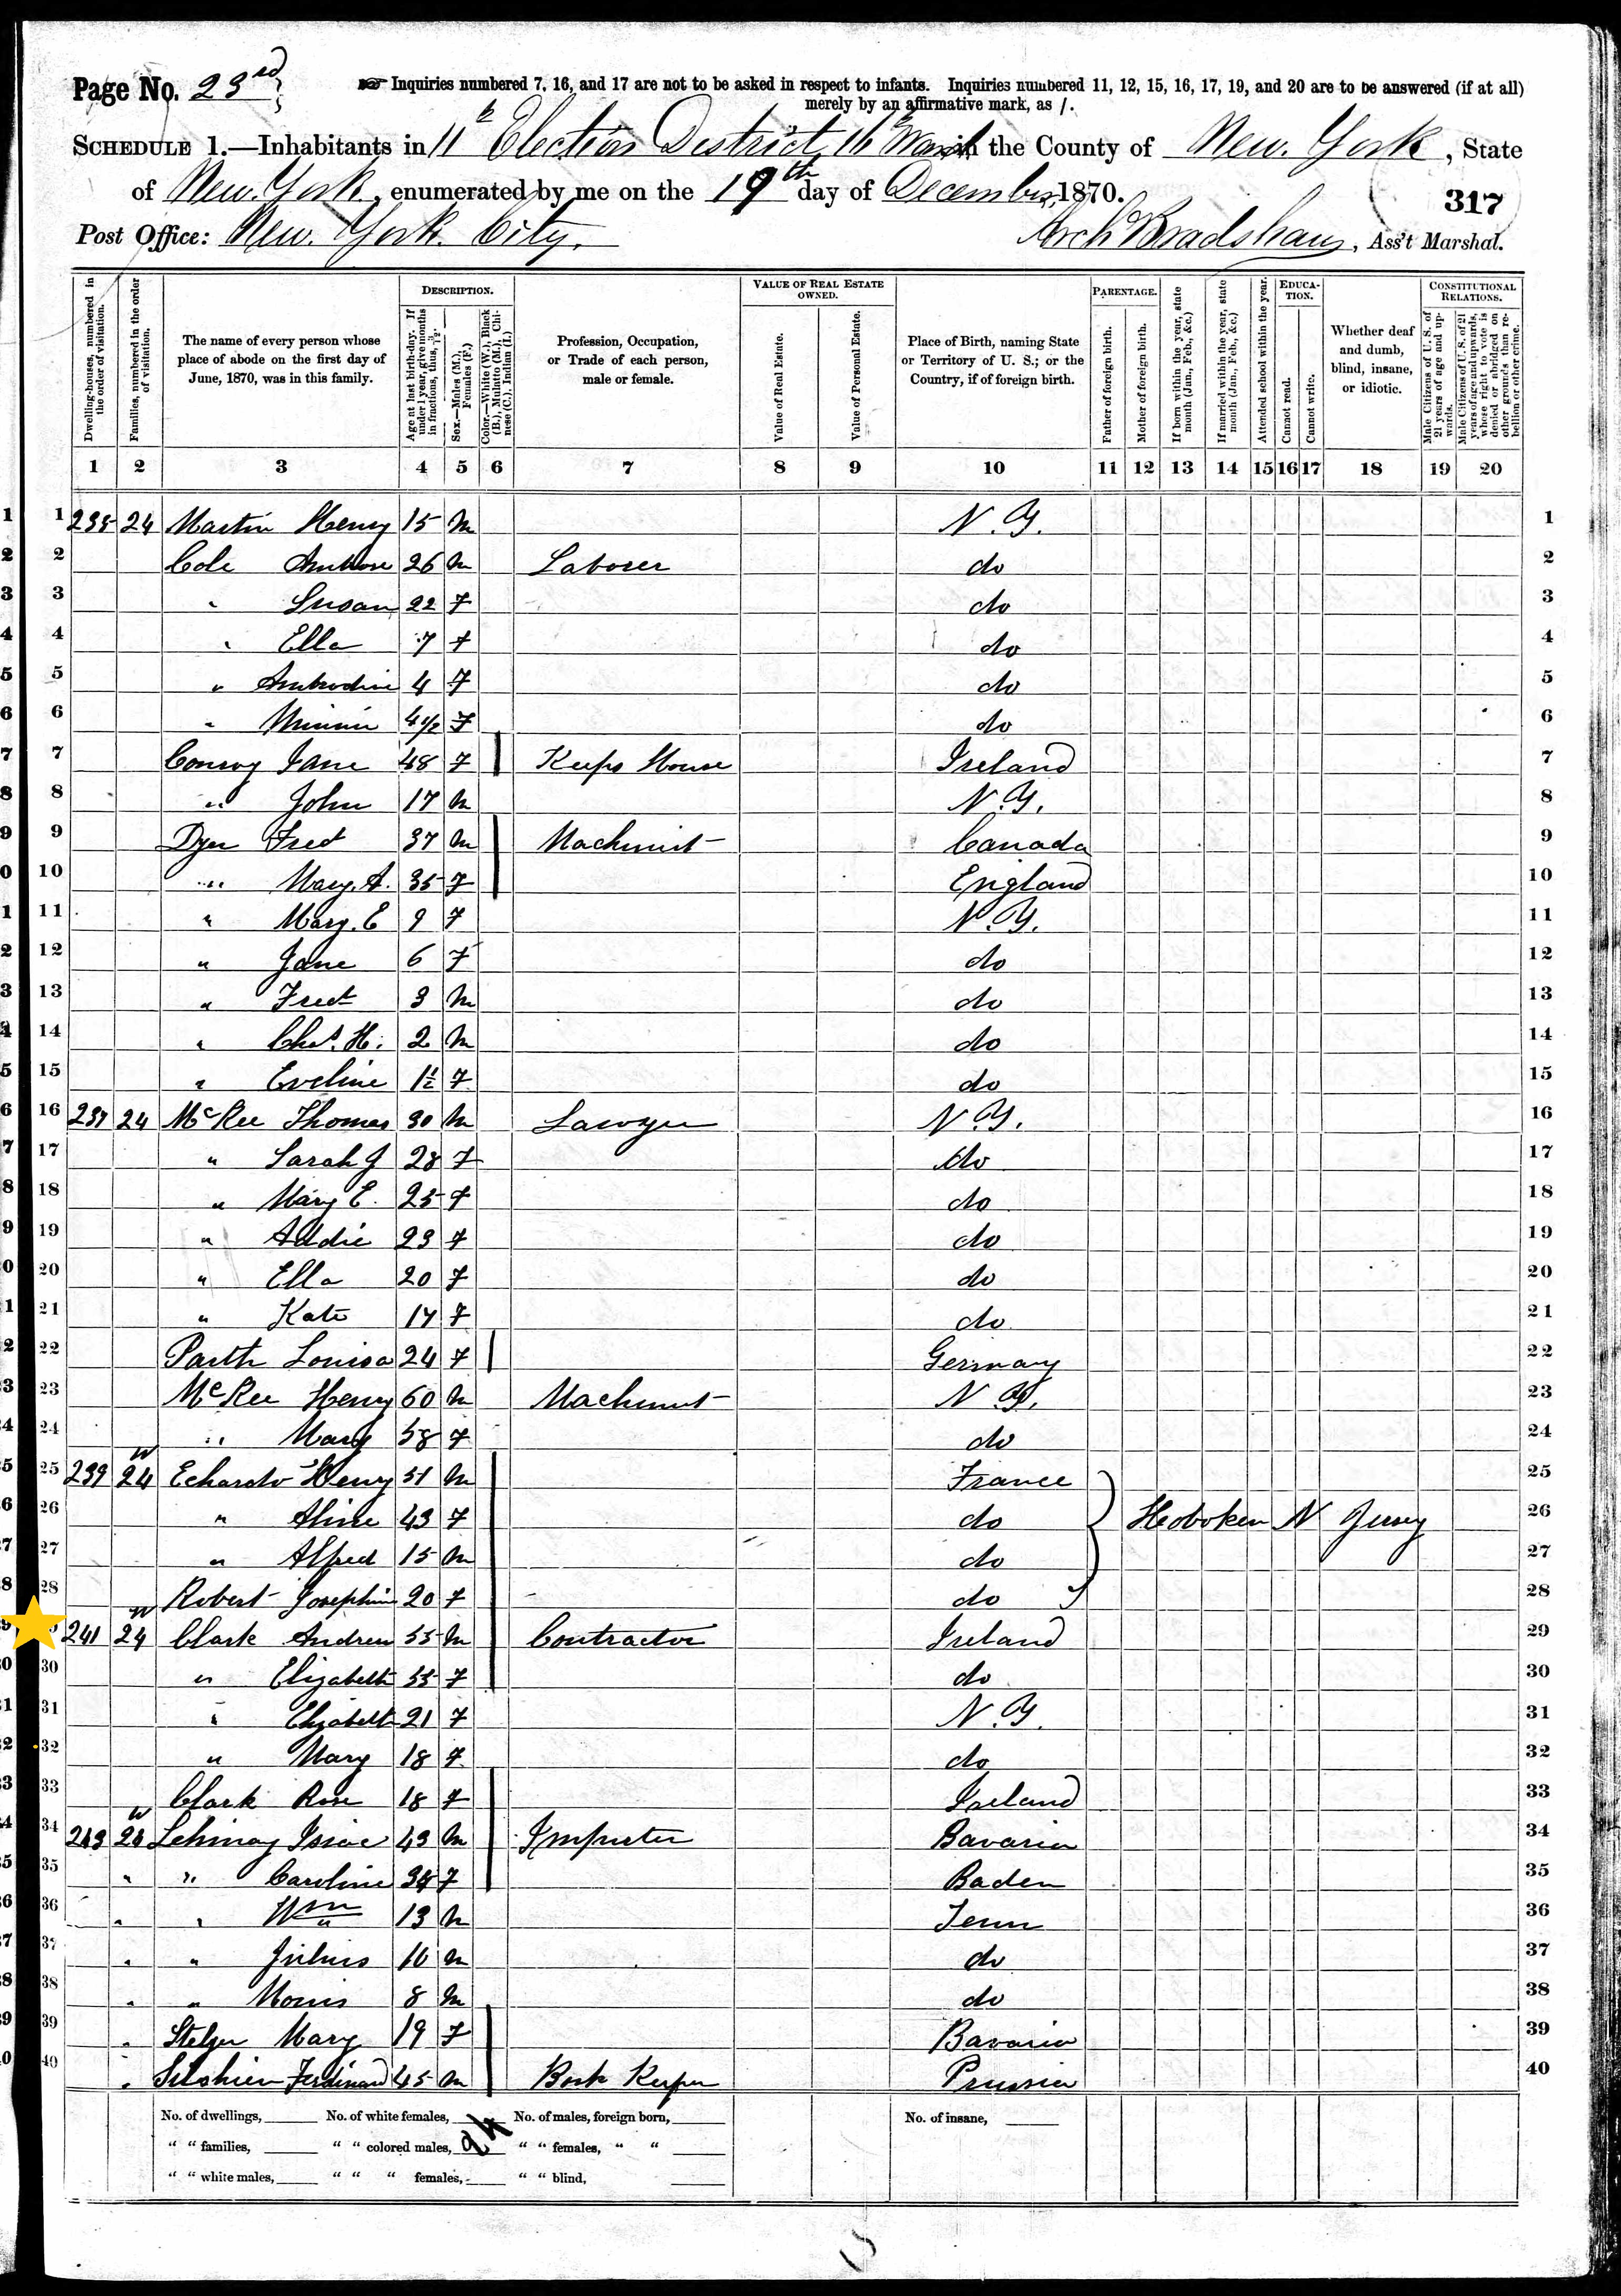 Page No. 23rd
☞ Inquiries numbered 7, 16, and 17 are not to be asked in respect to infants. Inquiries numbered 11, 12, 15, 16, 17, 19, and 20 are to be answered (if at all)
merely by an affirmative mark, as /.
SCHEDULE 1.—Inhabitants in 11th Election District 16 Ward in the County of New York, State
of New York, enumerated by me on the 19th day of December, 1870.
317
Post Office: New York City.
Arch Bradshaw, Ass't Marshal.
Dwelling-houses, numbered in the order of visitation.
Families, numbered in the order of visitation.
The name of every person whose place of abode on the first day of June, 1870, was in this family.
DESCRIPTION.
Age at last birth-day. If under 1 year, give months in fractions, thus, 3/12.
Sex.—Males (M.), Females (F.)
Color.—White (W.), Black (B.), Mulatto (M.), Chinese (C.), Indian (I.)
Profession, Occupation, or Trade of each person, male or female.
VALUE OF REAL ESTATE OWNED.
Value of Real Estate.
Value of Personal Estate.
Place of Birth, naming State or Territory of U. S.; or the Country, if of foreign birth.
PARENTAGE.
Father of foreign birth.
Mother of foreign birth.
If born within the year, state month (Jan., Feb., &c.)
If married within the year, state month (Jan., Feb., &c.)
Attended school within the year.
EDUCATION.
Cannot read.
Cannot write.
Whether deaf and dumb, blind, insane, or idiotic.
CONSTITUTIONAL RELATIONS.
Male Citizens of U. S. of 21 years of age and upwards.
Male Citizens of U. S. of 21 years of age and upwards, whose right to vote is denied or abridged on other grounds than rebellion or other crime.
1 2 3 4 5 6 7 8 9 10 11 12 13 14 15 16 17 18 19 20
1 235 24 Martin Henry 15 M N.Y. 1
2 Cole Ambrose 26 M Laborer do 2
3 " Susan 22 F do 3
4 " Ella 7 F do 4
5 " Ambrodine 4 F do 5
6 " Minnie 4 1/2 F do 6
7 Conroy Jane 48 F Keeps House Ireland 7
8 " John 17 M N.Y. 8
9 Dyer Fred 37 M Machinist Canada 9
10 " Mary. A. 35 F England 10
11 " Mary. E 9 F N.Y. 11
12 " Jane 6 F do 12
13 " Fred 3 M do 13
14 " Chas. H. 2 M do 14
15 " Eveline 1 1/2 F do 15
16 237 24 McKee Thomas 30 M Lawyer N.Y. 16
17 " Sarah J 28 F do 17
18 " Mary E. 25 F do 18
19 " Addie 23 F do 19
20 " Ella 20 F do 20
21 " Kate 17 F do 21
22 Parth Louisa 24 F Germany 22
23 McKee Henry 60 M Machinist N.Y. 23
24 " Mary 58 F do 24
25 239 W 24 Echardo Henry 51 M France 25
26 " Aline 43 F do Hoboken N Jersey 26
27 " Alfred 15 M do 27
28 Robert Josephine 20 F do 28
241 W 24 Clark Andrew 55 M Contractor Ireland 29
30 " Elizabeth 55 F do 30
31 " Elizabeth 21 F N.Y. 31
32 " Mary 18 F do 32
33 Clark Rose 18 F Ireland 33
34 243 W 24 Lehmay Isiac 43 M Importer Bavaria 34
35 " " Caroline 34 F Baden 35
36 " " Wm 13 M Tenn 36
37 " " Julius 10 M do 37
38 " " Morris 8 M do 38
39 " Stelzer Mary 19 F Bavaria 39
40 " Ferdinand 45 M Book Keeper Prussia 40
No. of dwellings, No. of white females, No. of males, foreign born, No. of insane,
" " families, " " colored males, 24 " " females, " "
" " white males, " " " females, " " blind,